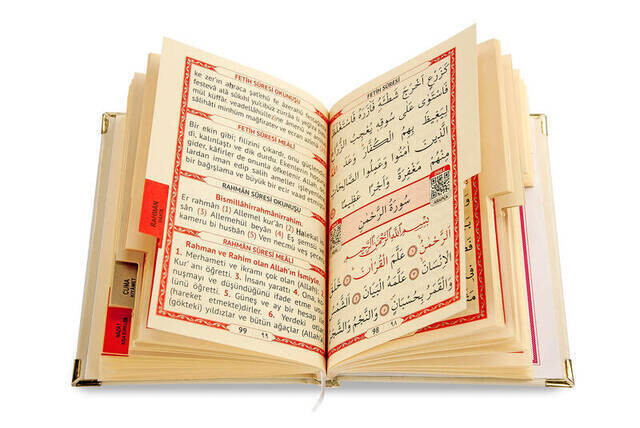 FETİH SÛRESİ OKUNUŞU
ke zer'in ahrace şat'ehû fe âzerahû
festevâ alâ sûkıhî yu'cibüz zürrâa li yeğîza
mül küffâr, veadellâhüllezîne âmenû ve
sâlihâti minhüm mağfiratev ve ecran
FETİH SÛRESİ MEÂLİ
Bir ekin gibi; filizini çıkardı, onu güçlen
di, kalınlaştı ve dik durdu. Ekenlerin hoşuna
gider, kâfirler de onunla öfkelenir. Allah,
lardan iman edip salih ameller işleyenler
bir bağışlama ve büyük bir ecir vaad
RAHMÂN SÛRESİ OKUNUŞU
Bismillâhirrahmânirrahîm.
Er rahmân (1) Allemel kur'ân (2) Halekal
sân (3) Allemehül beyân (4) Eş şemsü
kameru bi husbân (5) Ven necmü veş
RAHMÂN SÛRESİ MEÂLİ
Rahman ve Rahim olan Allah'ın İsmiyle.
1. Merhameti ve ikramı çok olan (Allah),
Kur'anı öğretti. 3. İnsanı yarattı 4. Ona,
nuşmayı ve düşündüğünü ifade etme
ünü öğretti. 5. Güneş ve ay bir hesap
(hareket etmektedirler.) 6. Yerdeki
(gökteki) yıldızlar ve bütün ağaçlar (Allah'a)
99 ٩٩
RAHMÂN
CUMA
FETİH SÛRESİ
كَزَرْعٍ اَخْرَجَ شَطْـَٔهُ فَاٰزَرَهُ فَاسْتَغْلَظَ
فَاسْتَوٰى عَلٰى سُوقِهٖ يُعْجِبُ الزُّرَّاعَ
لِيَغٖيظَ بِهِمُ الْكُفَّارَ وَعَدَ اللّٰهُ
الَّذٖينَ اٰمَنُوا وَعَمِلُوا الصَّالِحَاتِ
مِنْهُمْ مَغْفِرَةً وَاَجْرًا عَظٖيمًا
سُورَةُ الرَّحْمٰنِ
بِسْمِ اللّٰهِ الرَّحْمٰنِ الرَّحٖيمِ
اَلرَّحْمٰنُ عَلَّمَ الْقُرْاٰنَ خَلَقَ
الْاِنْسَانَ عَلَّمَهُ الْبَيَانَ اَلشَّمْسُ
وَالْقَمَرُ بِحُسْبَانٍ وَالنَّجْمُ وَالشَّجَرُ
98 ٩٨